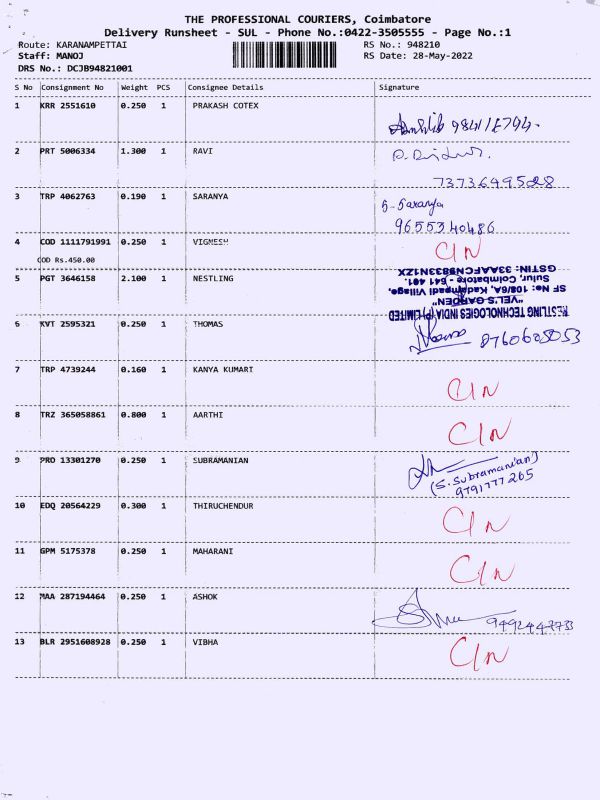 THE PROFESSIONAL COURIERS, Coimbatore
Delivery Runsheet - SUL - Phone No.:0422-3505555 - Page No.:1
Route: KARANAMPETTAI RS No.: 948210
Staff: MANOJ RS Date: 28-May-2022
DRS No.: DCJB94821001
S No Consignment No Weight PCS Consignee Details Signature
1 KRR 2551610 0.250 1 PRAKASH COTEX
2 PRT 5006334 1.300 1 RAVI
7373649528
3 TRP 4062763 0.190 1 SARANYA S-Saranya
9655340486
4 COD 1111791991 0.250 1 VIGMESH C/N
COD Rs.450.00
5 PGT 3646158 2.100 1 NESTLING
NESTLING TECHNOLOGIES INDIA (P) LIMITED
"VEL'S GARDEN"
SF No: 108/6A, Kadampadi Village,
Sulur, Coimbatore - 641 401.
GSTIN: 33AAFCN9833N1ZX
6 KVT 2595321 0.250 1 THOMAS 8760605053
7 TRP 4739244 0.160 1 KANYA KUMARI C/N
8 TRZ 365058861 0.800 1 AARTHI C/N
9 PRO 13301270 0.250 1 SUBRAMANIAN
(S. Subramanian)
9791777265
10 EDQ 20564229 0.300 1 THIRUCHENDUR C/N
11 GPM 5175378 0.250 1 MAHARANI C/N
12 MAA 287194464 0.250 1 ASHOK
13 BLR 2951608928 0.250 1 VIBHA C/N